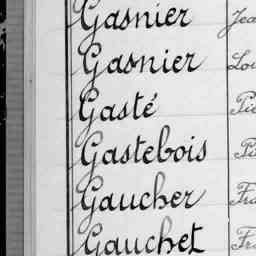 Gasnier Jea
Gasnier Lou
Gasté Pie
Gastebois Pie
Gaucher Fra
Gauchet Fra